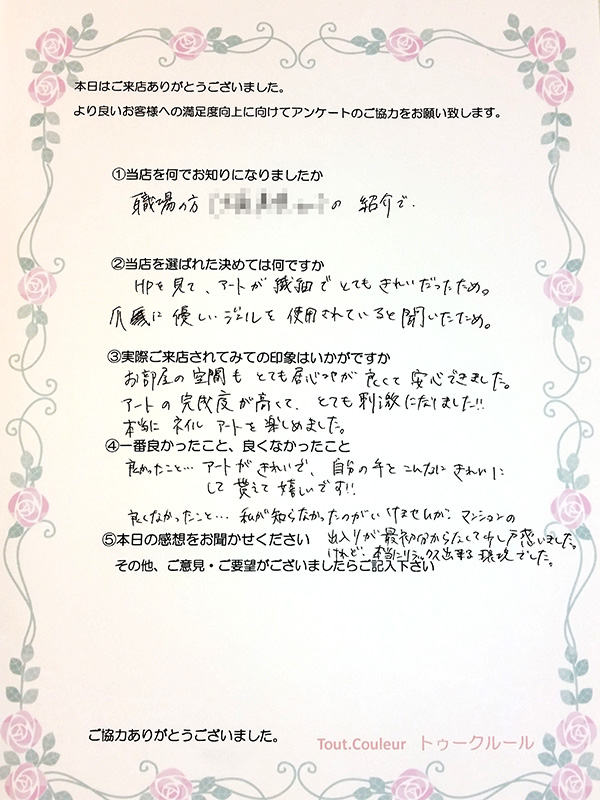 本日はご来店ありがとうございました。
より良いお客様への満足度向上に向けてアンケートのご協力をお願い致します。
①当店を何でお知りになりましたか
職場の方 の 紹介で.
②当店を選ばれた決めては何ですか
HPを見て、アートが繊細でとてもきれいだったため。
爪に優しいジェルを使用されていると聞いたため。
③実際ご来店されてみての印象はいかがですか
お部屋の空間もとても居心地が良くて安心できました。
アートの完成度が高くて、とても刺激になりました!!
本当にネイルアートを楽しめました。
④一番良かったこと、良くなかったこと
良かったこと…アートがきれいで、自分の手をこんなにきれいに
して貰えて嬉しいです!!
良くなかったこと…私が知らなかったのがいけませんが、マンションの
出入りが最初分からなくて少し戸惑いました。
けれど、本当にリラックス出来る環境でした。
⑤本日の感想をお聞かせください
その他、ご意見・ご要望がございましたらご記入下さい
ご協力ありがとうございました。
Tout.Couleur トゥークルール